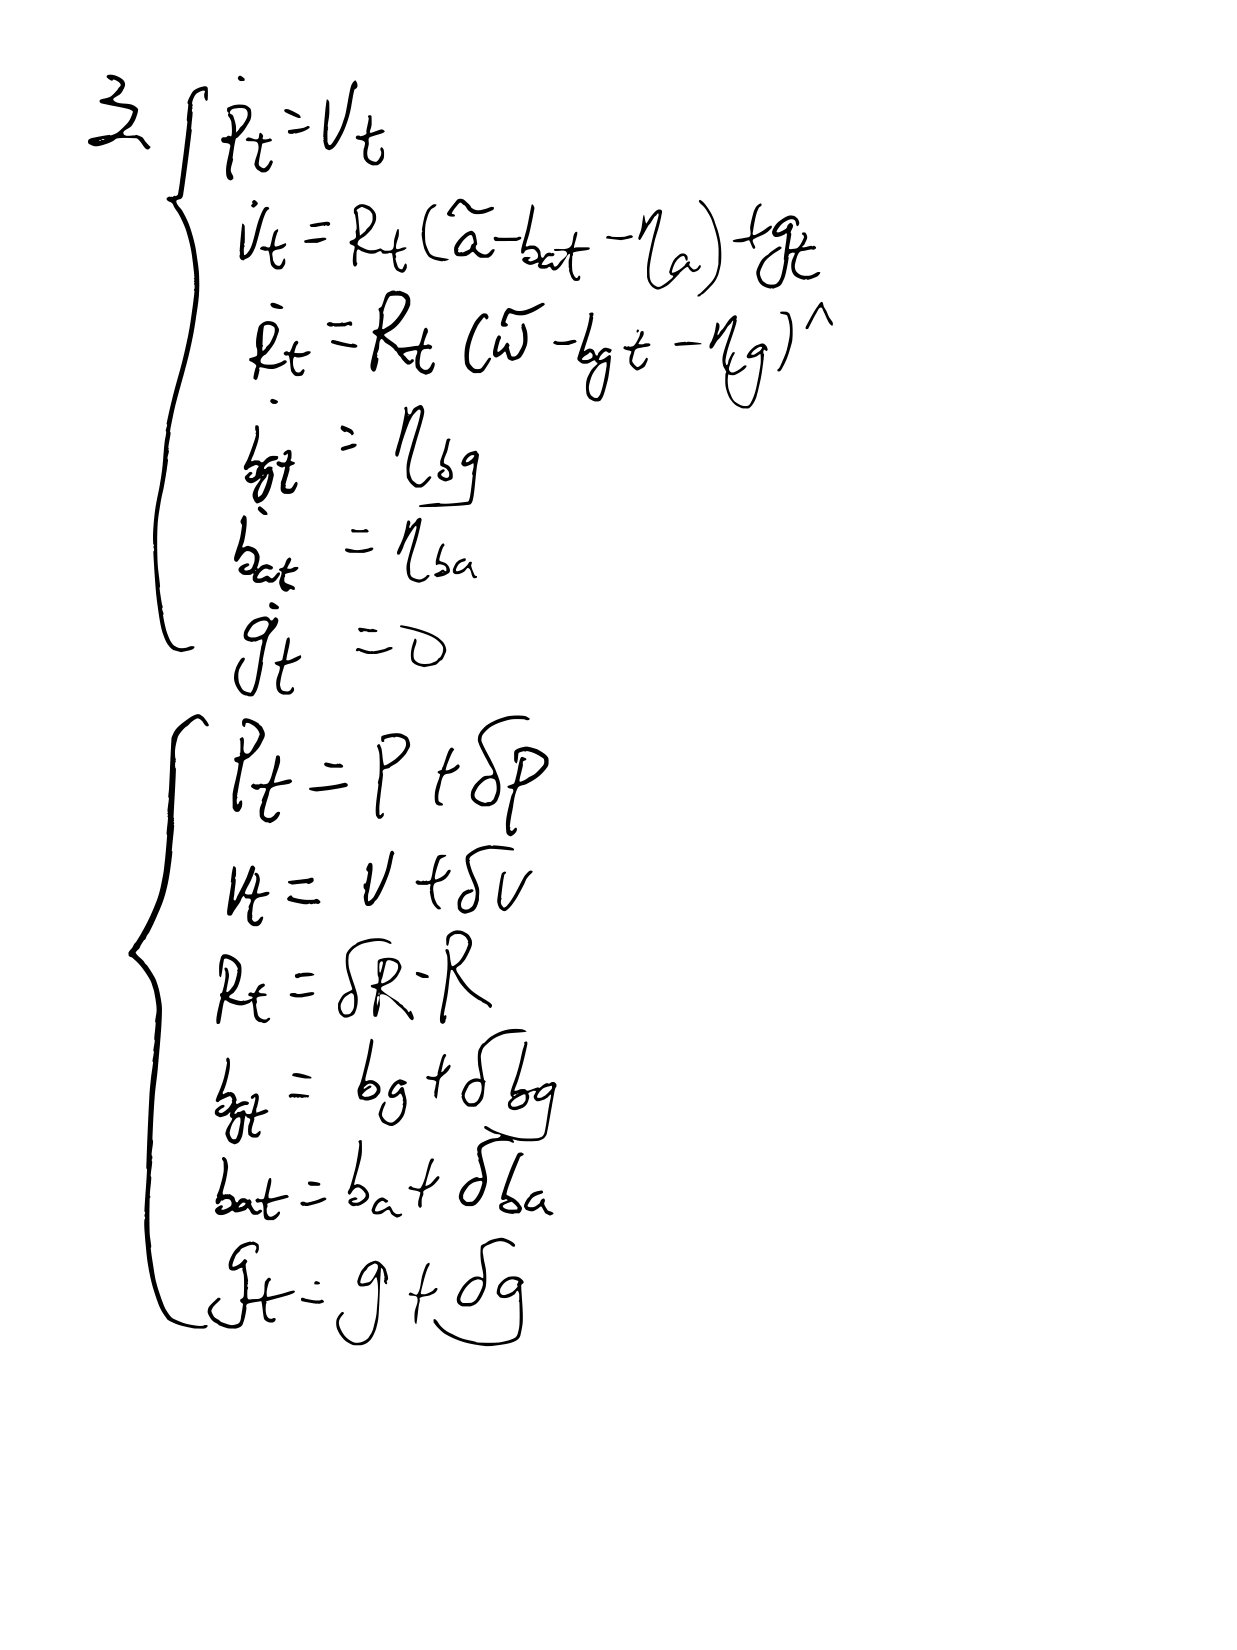 3. { ṗt = Vt
v̇t = Rt (ã - bat - ηa) + gt
Ṙt = Rt (ω̃ - bgt - ηg)^
ḃgt = ηbg
ḃat = ηba
ġt = 0
{ Pt = P + δp
Vt = V + δv
Rt = δR · R
bgt = bg + δbg
bat = ba + δba
gt = g + δg